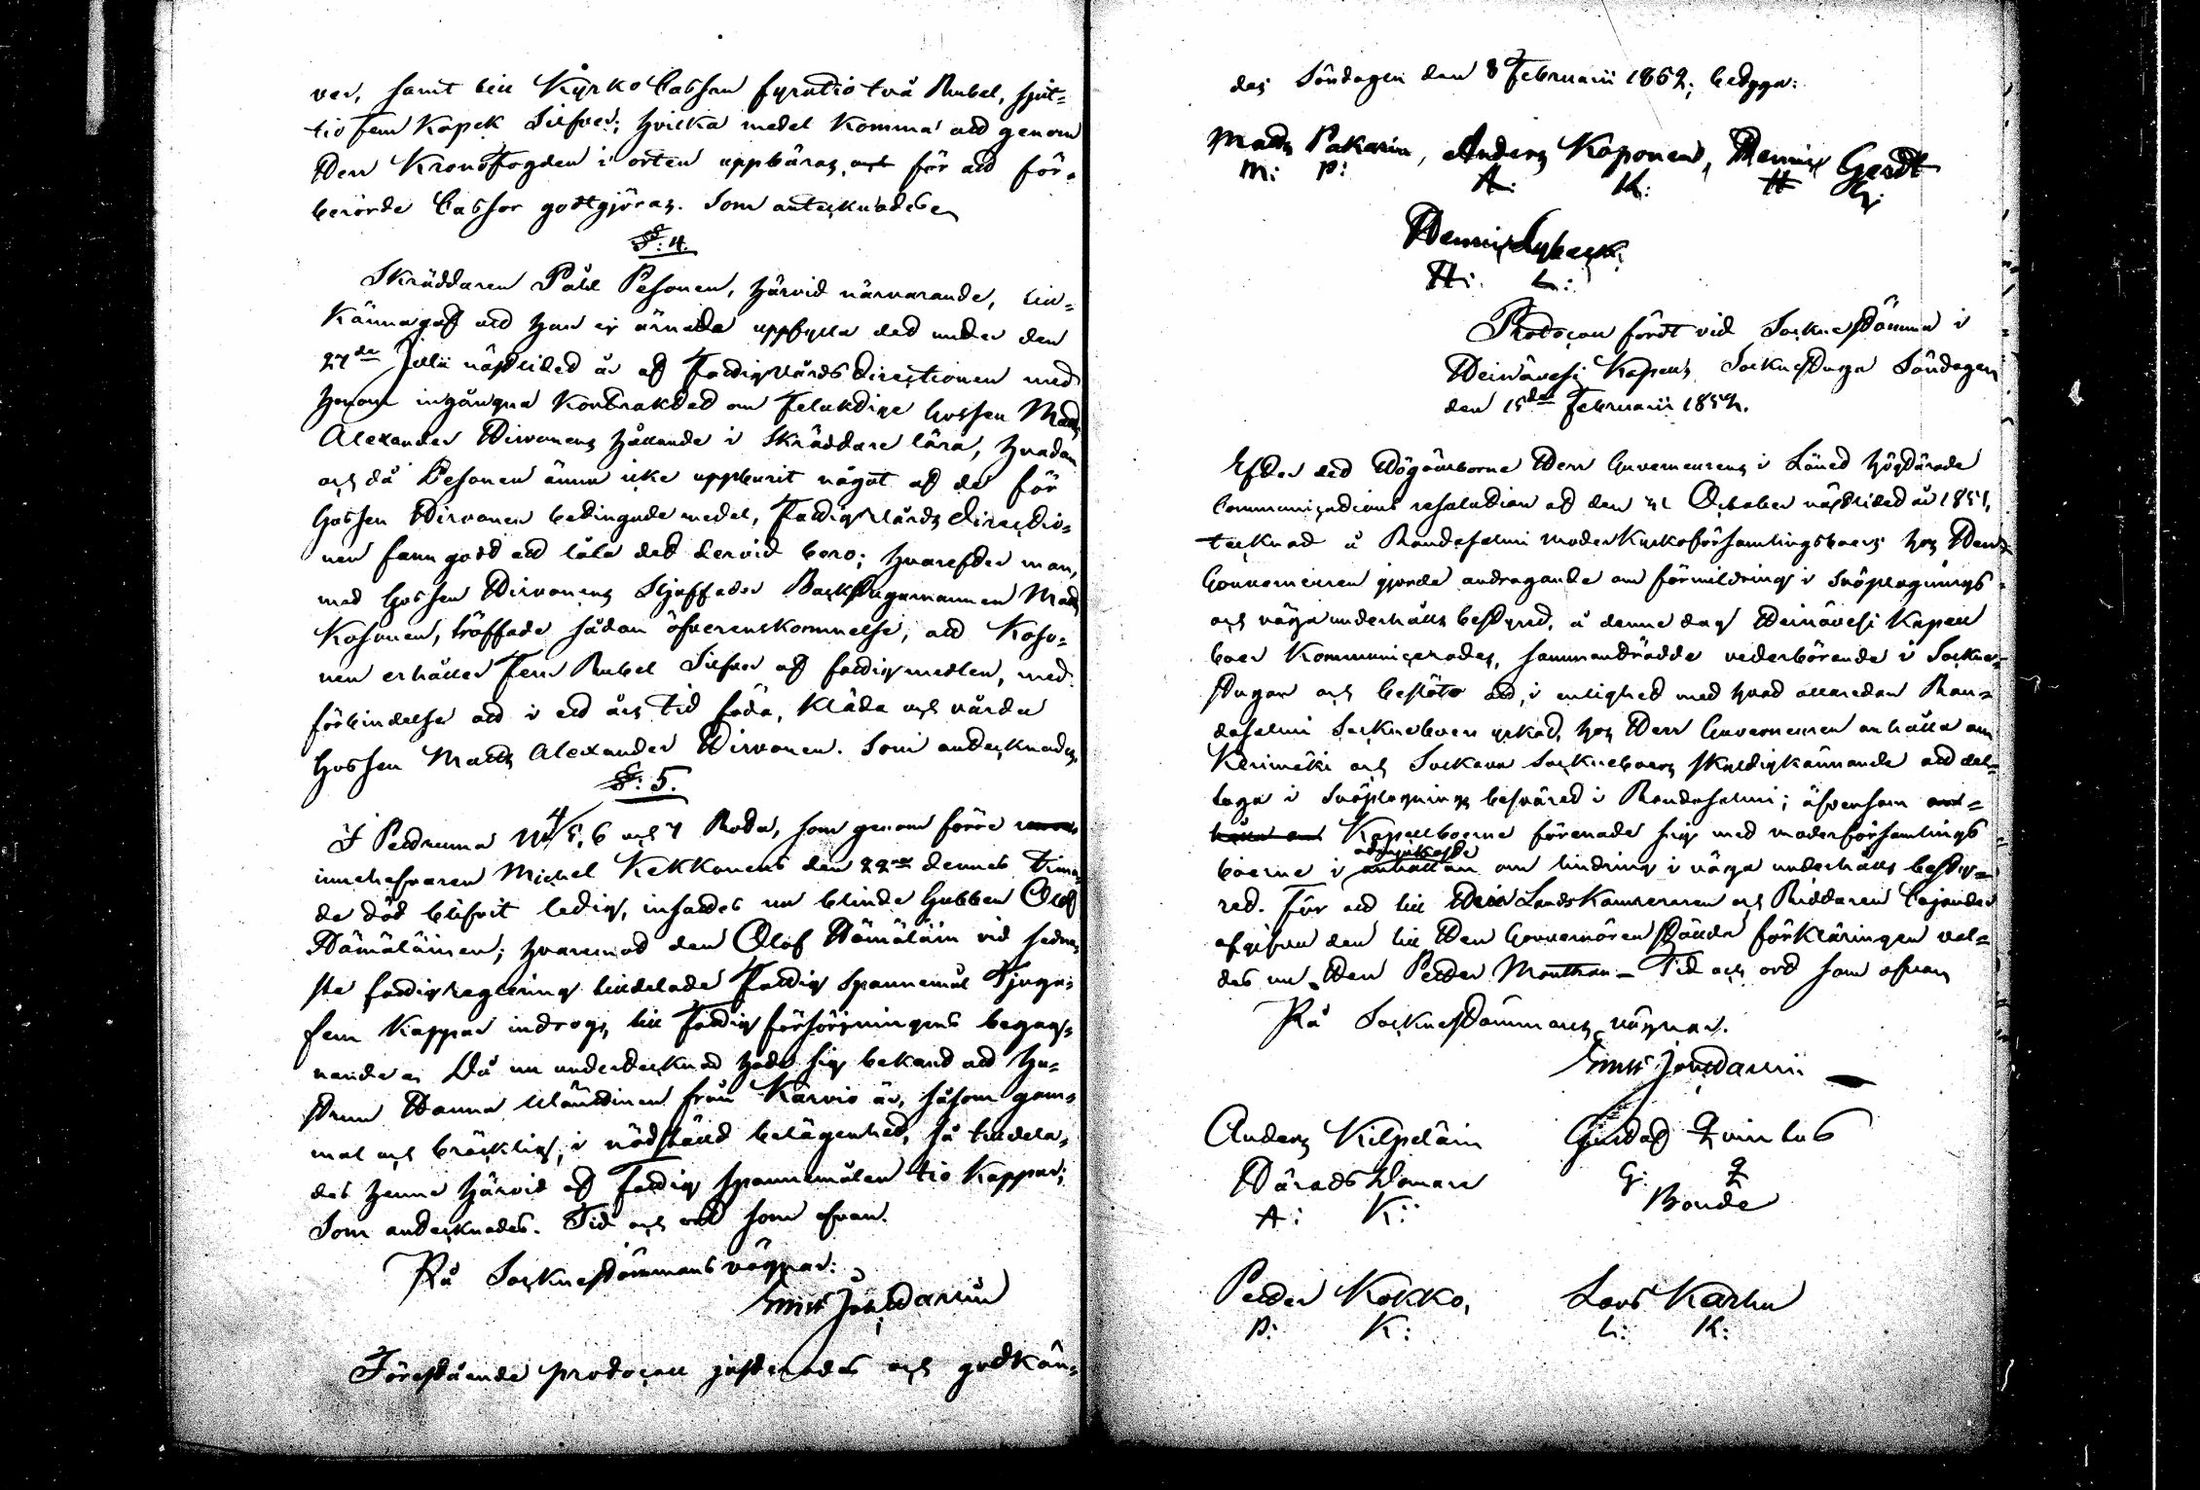 ver, samt till Kyrko Cassan fyratio två Rubel, sjut=
tio fem Kopek Silfver; hvilka medel komma att genom
Herr Kronofogden i orten uppbäras, och för att för=
berörde Cassor godtgjöras. Som antecknades
§: 4.
Skräddaren Påhl Pesonen, härvid närvarande, till=
kännagaf att han ej ärnade uppfylla det under den
27de Julii nästlidet år af Fattigvårds directionen med
honom ingångna Kontraktet om Gossen Matts
Alexander Hirvonens hållande i Skräddare lära, hvadan
och då Pesonen ännu icke uppburit något af de för
Gossen Hirvonen betingade medel, Fattigvårds directio=
nen fann godt att låta det dervid bero; hvarefter man,
med Gossen Hirvonens Styffader Backstugumannen Matts
Kosonen, träffade sådan öfverenskommelse, att Koso=
nen erhåller Fem Rubel Silfver af fattigmedlen, med
förbindelse att i ett års tid föda, kläda och vårda
Gossen Matts Alexander Hirvonen. Som antecknades.
§: 5.
I Pedrunna No 4/5, 6 och 7 Roda, som genom förre
innehafvaren Michel Kekkonens den 22 dennes tima=
de död blifvit ledig, insattes nu blinde Gubben Olof
Hämäläinen; hvaremot den Olof Hämäläin vid sedna=
ste fattigreglering tilldelade Fattig Spannemål Tjugu=
fem Kappar indrogs till Fattigförsörjningens begag=
nande. Då nu undertecknad hade sig bekant att Hu=
strun Hanna från Karvio är, såsom gam=
mal och bräcklig, i nödstäld belägenhet, så tilldela=
des henne härvid af Fattig Spannemålen tio Kappar;
Som antecknades. Tid och ort som ofvan.
På Sockne stämmans vägnar:
Förestående protocoll justerades och godkän=
des Söndagen den 8 Februarii 1852; betyga:
Matts Pakarin, Anders Koponen, Henric Gerdt
M: P: A: K: H G:
Henric Lybeck.
H: L:
Protocoll fördt vid Sockne stämma i
Heinävesi Kapells Socknestuga Söndagen
den 15de Februarii 1852.
Efter det Högvälborne Herr Guverneurens i Länet högtärade
Communications resolution af den 21 October nästlidet år 1851,
tecknad å Randasalmi Moderkyrkoförsamlingsboers hos Herr
Gouverneuren gjorde andragande om förmildring i Snöplognings=
och väga underhålls bestyret, å denne dag Heinävesi Kapell
boer Kommunicerades, sammanträdde vederbörande i Sockne=
stugan och beslöto att, i enlighet med hvad allaredan Ran=
dasalmi Socknboer yrkat, hos Herr Guverneuren anhålla om
Kerimäki och Sockneboers skyldigkännande att del=
taga i Snöplognings besväret i Randasalmi; äfvensom
Kapellboerne förenade sig med moderförsamlings
boerne i anhållan om lindring i väga underhålls besty=
ret. För att till Herr Lands Kamreraren och Riddaren Cajander
afgifva den till Herr Gouvernören stälda förklaringen val=
des nu Herr Petter Monthan. Tid och ort som ofvan
På Sockne stämmans vägnar.
Anders Kilpeläin Gustaf Qvintus
Härads Domare G: Q
A: K: Bonde
Petter Kokko, Lars Karhu
P: K: L: K: